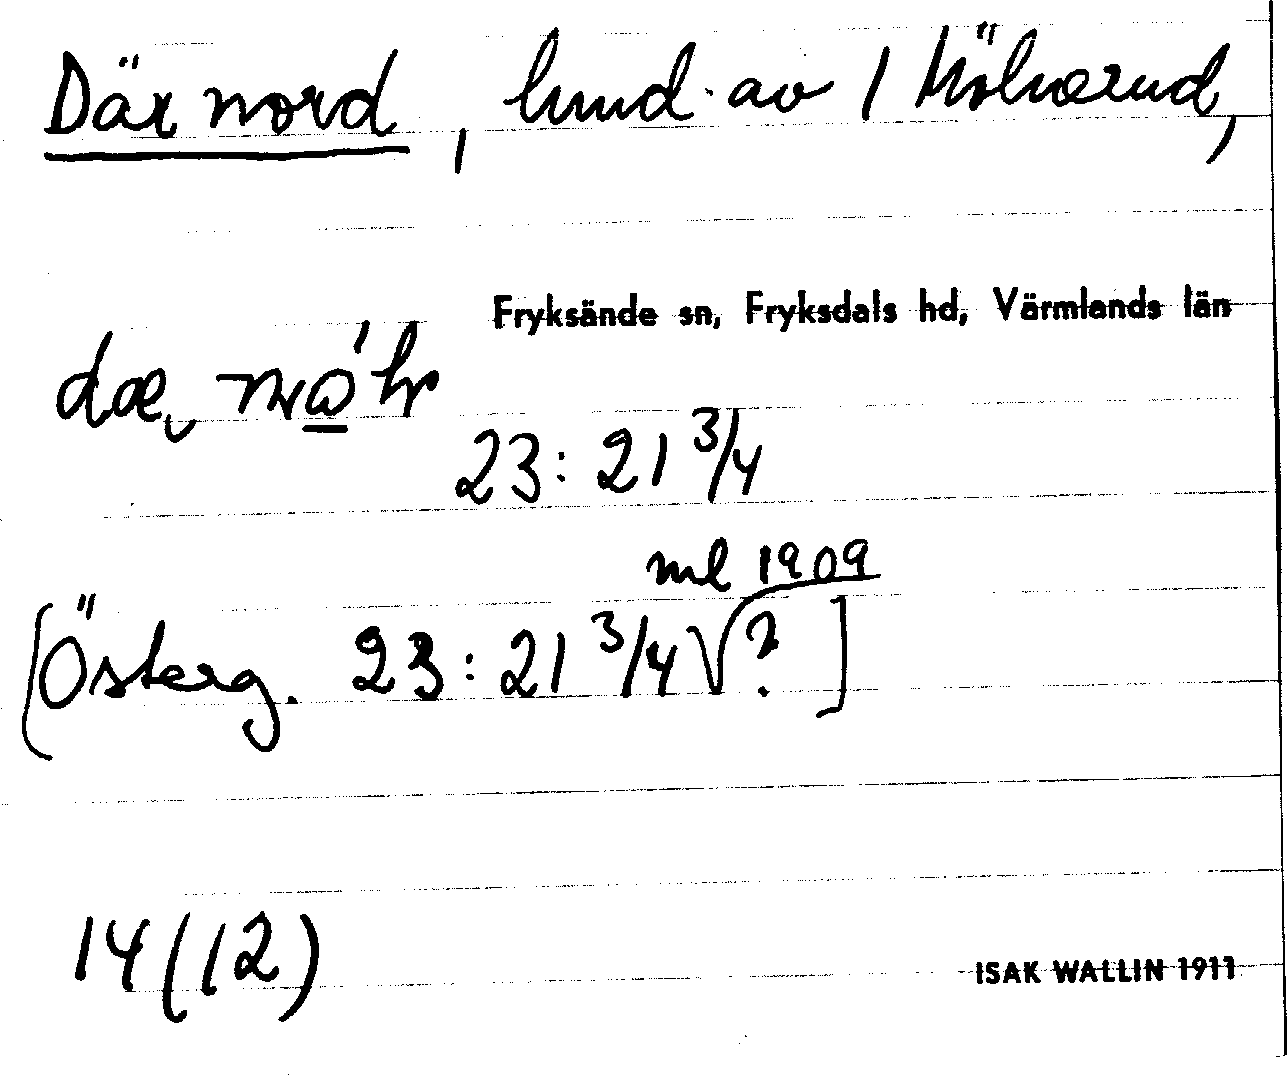 Där nord, hmd. av 1 Mölnerud,
Fryksände sn, Fryksdals hd, Värmlands län
23:21 3/4
ml 1909
[Österg. 23:21 3/4 √?]
14(12)
ISAK WALLIN 1911